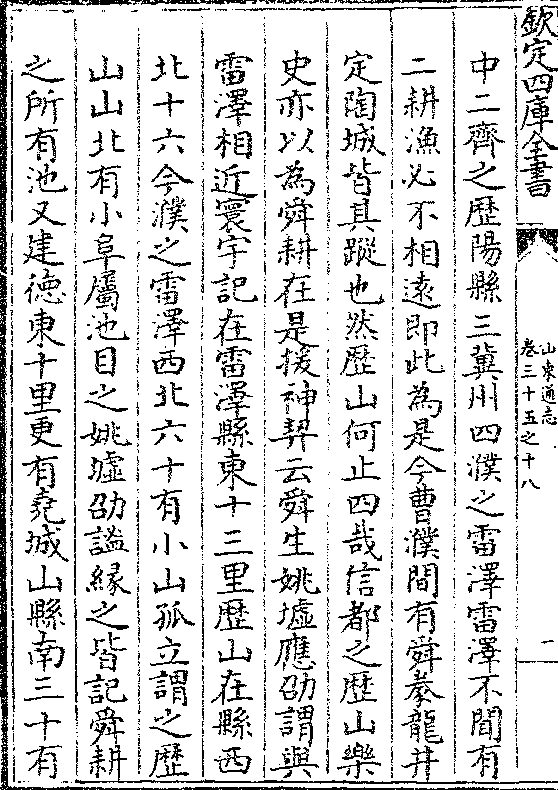 欽定四庫全書
山東通志
卷三十五之十八
一
中二齊之歷陽縣三冀州四濮之雷澤雷澤不聞有
二耕漁必不相遠即此為是今曹濮間有舜豢龍井
定陶城皆其蹤也然歷山何止四哉信都之歷山樂
史亦以為舜耕在是援神契云舜生姚墟應劭謂與
雷澤相近寰宇記在雷澤縣東十三里歷山在縣西
北十六今濮之雷澤西北六十有小山孤立謂之歷
山山北有小阜屬池目之姚墟劭謐緣之皆記舜耕
之所有池又建德東十里更有堯城山縣南三十有